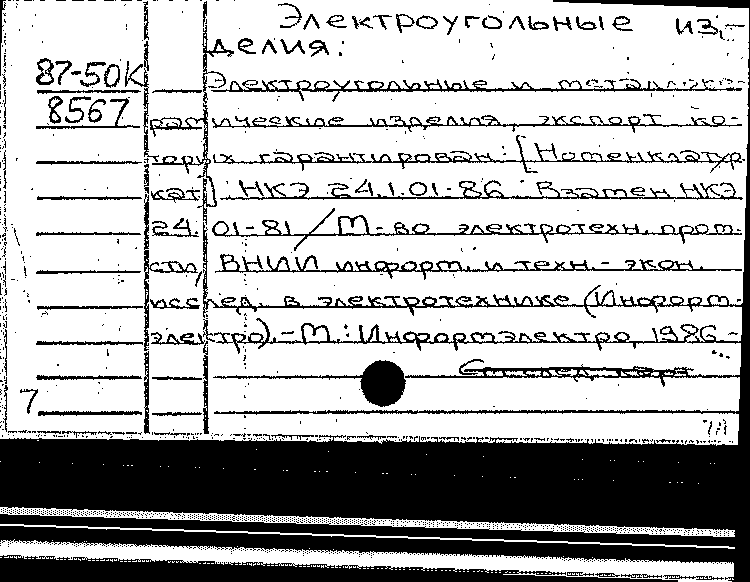 Электроугольные из-
делия:
87-50К
8567
Электроугольные и металлоке-
рамические изделия, экспорт ко-
торых гарантирован: [Номенклатур.
кат]. НКЭ 24.1.01-86. Взамен НКЭ
24. 01-81 / М-во электротехн. пром-
сти, ВНИИ информ. и техн.-экон.
исслед. в электротехнике (Информ-
электро).-М.: Информэлектро, 1986.-
...
См. след. карт
7